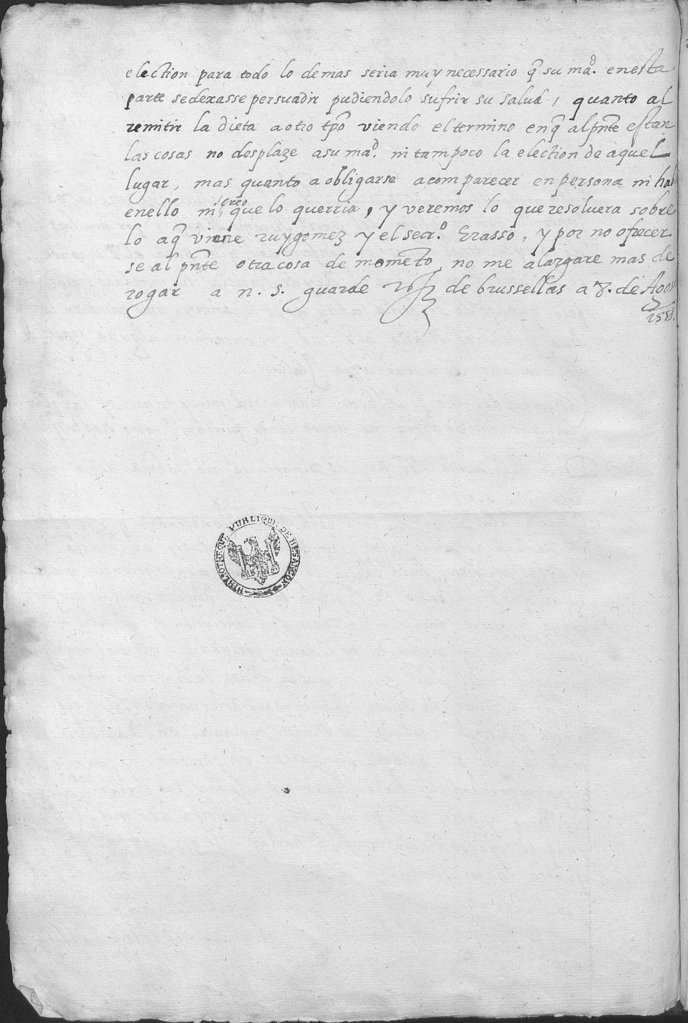 election para todo lo demas seria muy necessario q̃ su mad. en esta
parte se dexasse persuadir pudiendolo sufrir su salud, quanto al
remitir la dieta a otro tpõ viendo el termino en q̃ al pñte estan
las cosas no desplaze a su mad. ni tampoco la election de aquel
lugar, mas quanto a obligarse a comparecer en persona ni ha
en ello ni creo que lo querria, y veremos lo que resoluera sobre
lo a q̃ viene ruygomez y el secr.o Erasso, y por no ofrecer
se al pñte otra cosa de momẽto no me alargare mas de
rogar a n. s. guarde de brussellas a 8. de Agos
155
BIBLIOTHEQUE PUBLIQUE DE BESANÇON